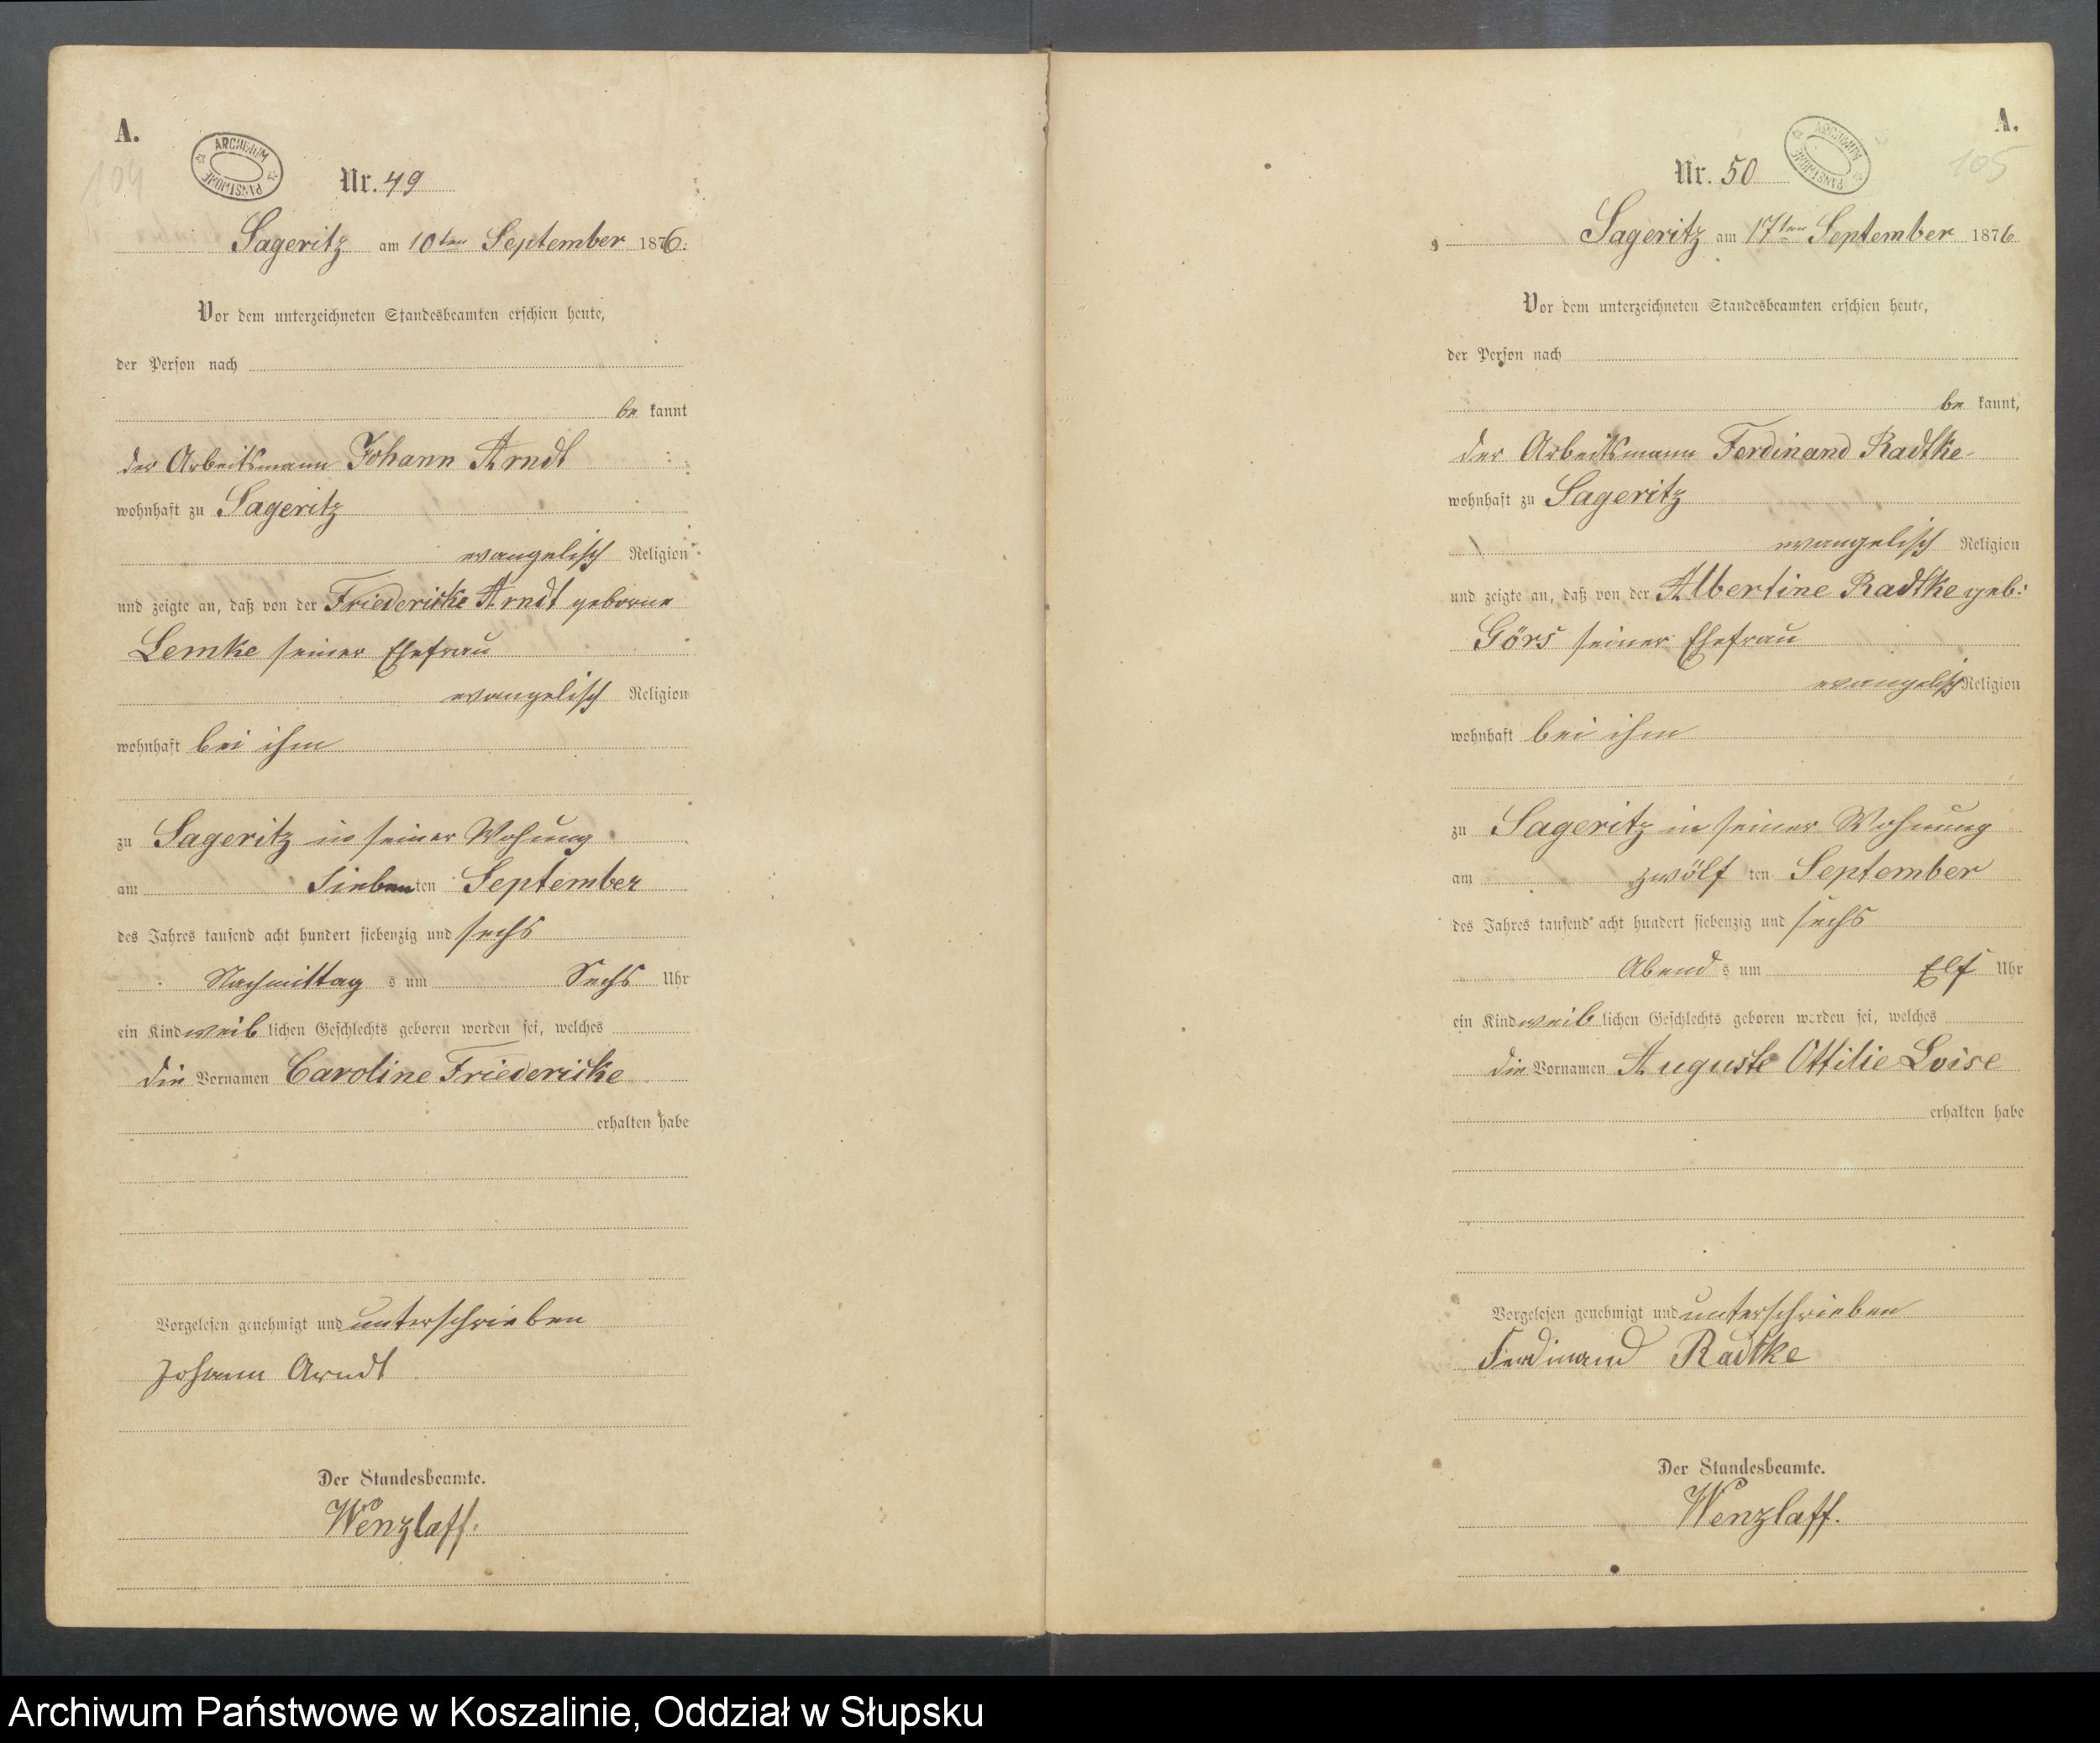 A.
104
ARCHIWUM PAŃSTWOWE
Nr. 49
Sageritz am 10ten September 1876.
Vor dem unterzeichneten Standesbeamten erschien heute,
der Person nach
be kannt
der Arbeitsmann Johann Arndt
wohnhaft zu Sageritz
evangelisch Religion
und zeigte an, daß von der Friedericke Arndt geborne
Lemke seiner Ehefrau
evangelisch Religion
wohnhaft bei ihm
zu Sageritz in seiner Wohnung
am Siebenten September
des Jahres tausend acht hundert siebenzig und sechs
Nachmittag s um Sechs Uhr
ein Kind weiblichen Geschlechts geboren worden sei, welches
die Vornamen Caroline Friedericke
erhalten habe
Vorgelesen genehmigt und unterschrieben
Johann Arndt
Der Standesbeamte.
Wenzlaff.
A.
105
ARCHIWUM PAŃSTWOWE
Nr. 50
Sageritz am 17ten September 1876
Vor dem unterzeichneten Standesbeamten erschien heute,
der Person nach
be kannt,
der Arbeitsmann Ferdinand Radtke
wohnhaft zu Sageritz
evangelisch Religion
und zeigte an, daß von der Albertine Radtke geb:
Görs seiner Ehefrau
evangelisch Religion
wohnhaft bei ihm
zu Sageritz in seiner Wohnung
am zwölf ten September
des Jahres tausend acht hundert siebenzig und sechs
Abend s um Elf Uhr
ein Kind weiblichen Geschlechts geboren worden sei, welches
die Vornamen Auguste Ottilie Loise
erhalten habe
Vorgelesen genehmigt und unterschrieben
Ferdinand Radtke
Der Standesbeamte.
Wenzlaff.
Archiwum Państwowe w Koszalinie, Oddział w Słupsku